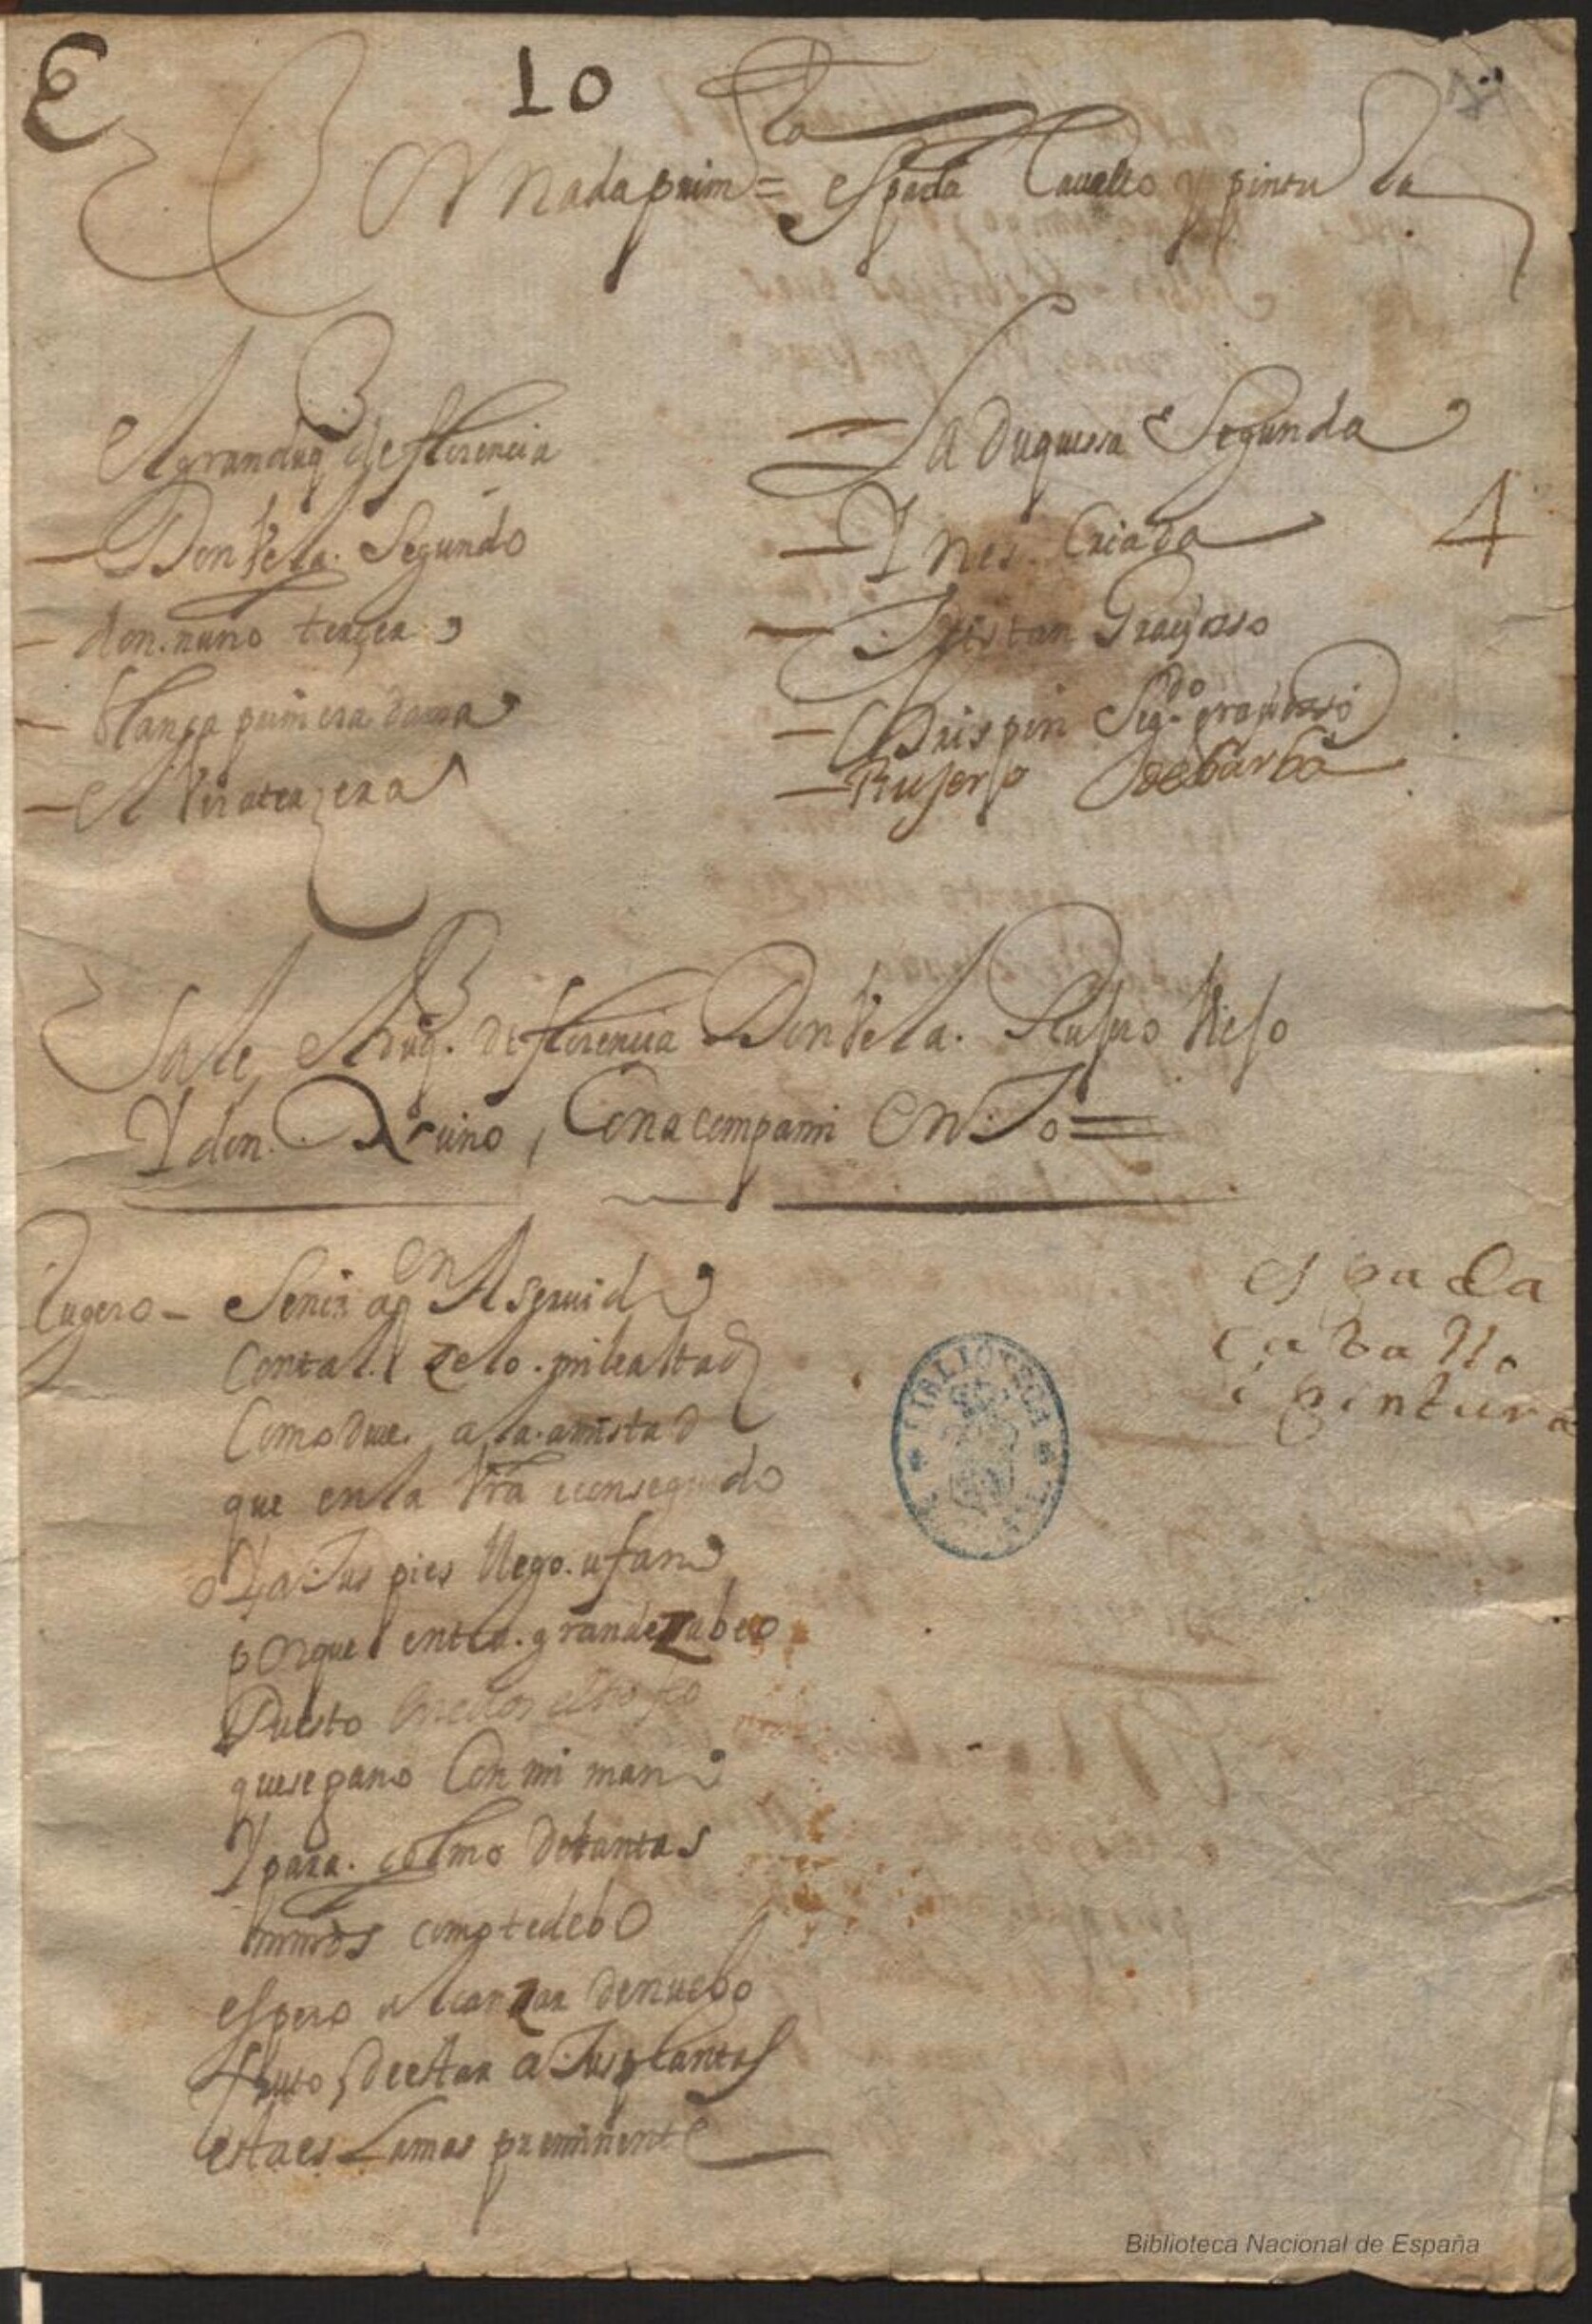 E 10
la
Jornada prim = espada Cauallo y pintura
El gran duq de florencia
Don Vela. Segundo
don. nuno terçero
blanca primera dama
Elvira terçera
La Duquessa Segunda
Ines. Criada
Tristan Graçioso
Crispin Seg.do graçioso
Rujero de barba
4
Sale El duq. de florencia Don Vela. Rujero Viejo
Y don. Nuno, Con acompañami En To =
Rugero - Senor en aq El seruid
Con tal. Zelo. mi lealtad
Como due. a la. amistad
que en la Vra e conseguido
Y a Tus pies llego. ufano
porque en tu. grandeza beo
Puesto
que se gano Con mi mano
Y para. colmo de tantas
como te debo
espero alcanzar de nuebo
fruto, de estar a Tus plantas
esta es La mas preminente
espada
caballo
i pintura
BIBLIOTECA
Biblioteca Nacional de España